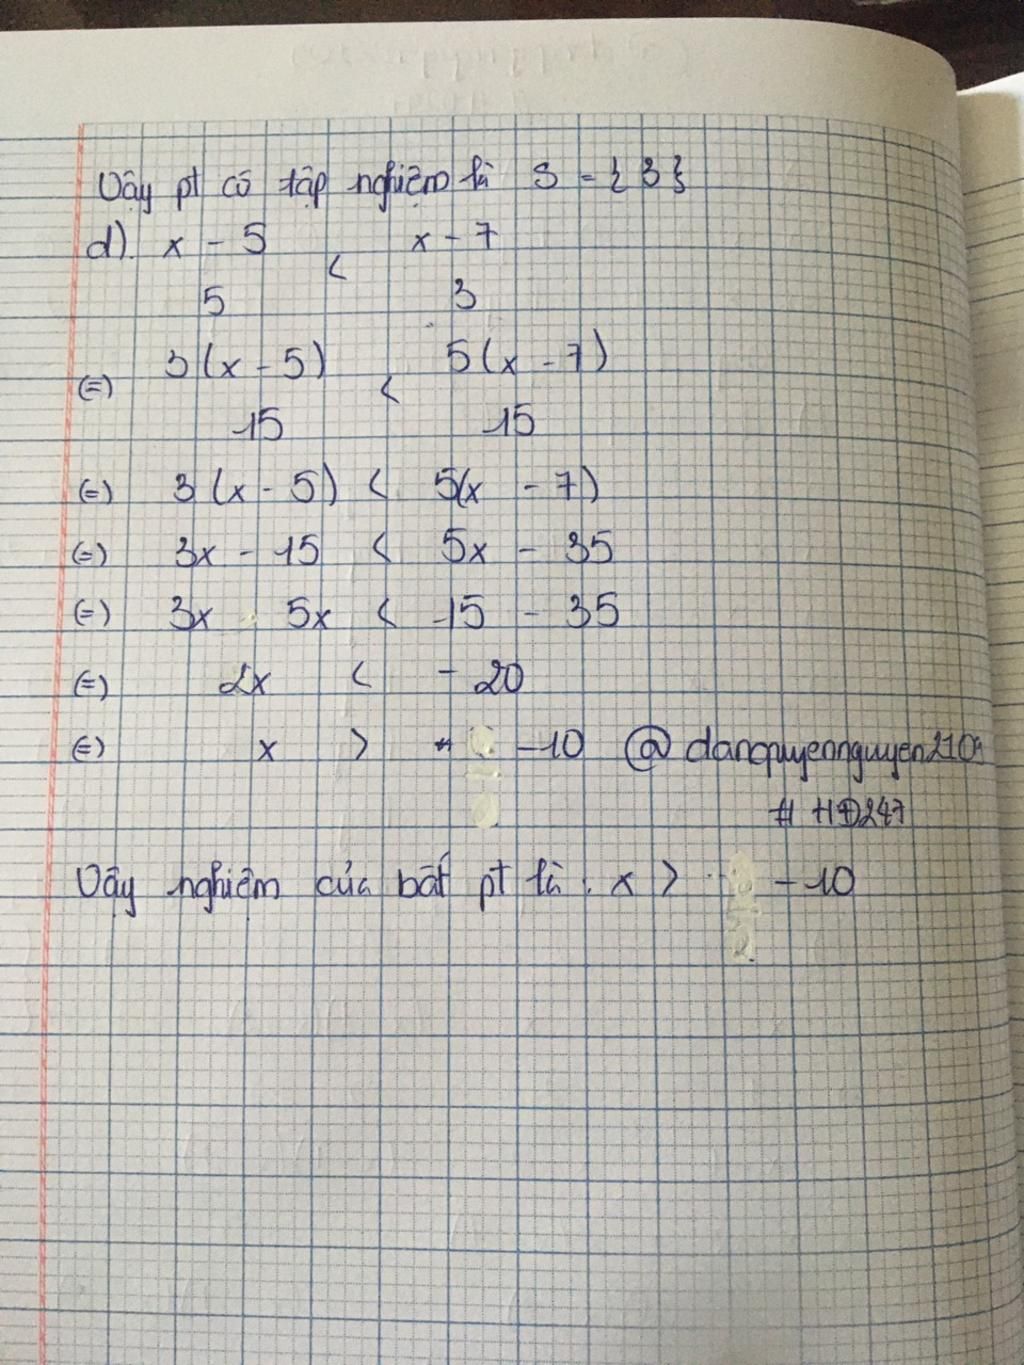 Vậy pt có tập nghiệm là S = { 3 }
d). x - 5 < x - 7
5 3
(=) 3(x - 5) < 5(x - 7)
15 15
(=) 3(x - 5) < 5(x - 7)
(=) 3x - 15 < 5x - 35
(=) 3x - 5x < 15 - 35
(=) 2x < - 20
(=) x > -10 @danquyennguyen2109
# HĐ247
Vậy nghiệm của bất pt là : x > -10